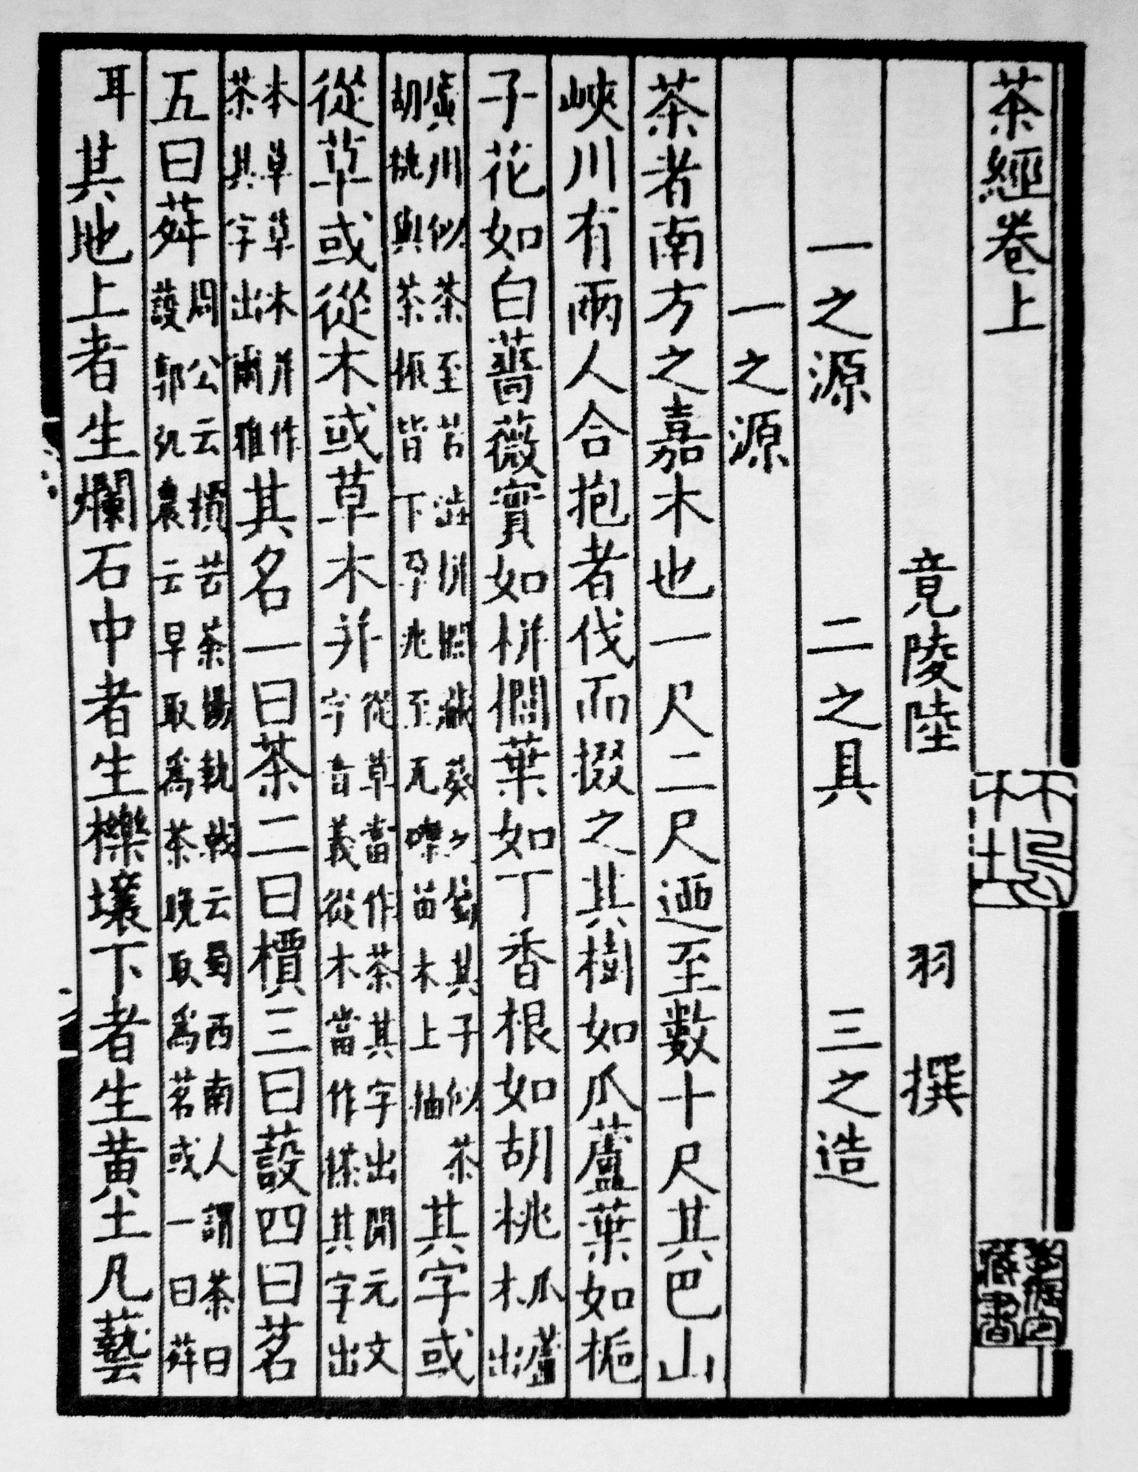 茶經卷上
竟陵陸 羽 撰
一之源 二之具 三之造
一之源
茶者南方之嘉木也一尺二尺迺至數十尺其巴山
峽川有兩人合抱者伐而掇之其樹如瓜蘆葉如梔
子花如白薔薇實如栟櫚葉如丁香根如胡桃瓜蘆木出
廣川似茶至苦澁栟櫚蒲葵之屬其子似茶胡桃與茶根皆下孕兆至瓦礫苗木上抽其字或
從草或從木或草木并從草當作茶其字出開元文字音義從木當作搽其字出
本草草木并作茶其字出爾雅其名一曰茶二曰檟三曰蔎四曰茗
五曰荈周公云檟苦茶揚執戟云蜀西南人謂茶曰蔎郭弘農云早取爲茶晚取爲茗或一曰荈
耳其地上者生爛石中者生櫟壤下者生黃土凡藝